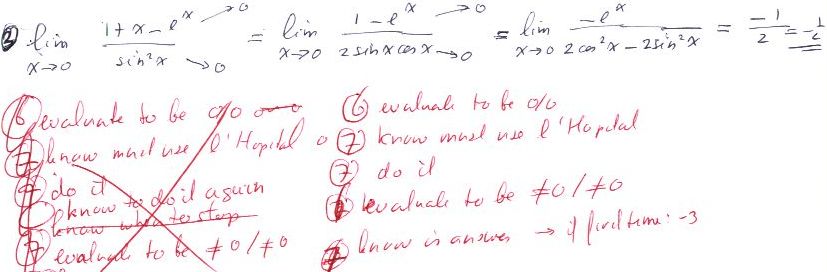 ② lim x→0 (1 + x - e^x →0) / (sin²x →0) = lim x→0 (1 - e^x →0) / (2 sin x cos x →0) = lim x→0 (-e^x) / (2 cos²x - 2 sin²x) = -1/2 = -1/2
⑥ evaluate to be 0/0
⑦ know must use l'Hopital
⑦ do it
know to do it again
know when to stop
⑦ evaluate to be ≠0/≠0
⑥ evaluate to be 0/0
⑦ know must use l'Hopital
⑦ do it
evaluate to be ≠0/≠0
⑦ know is answer → if time: -3